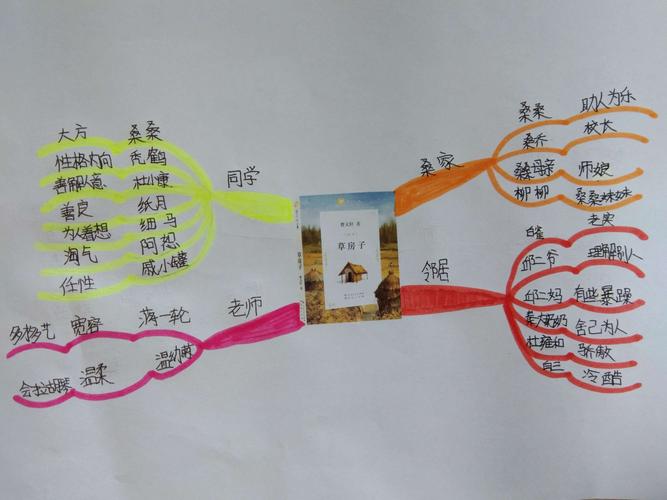 同学
大方 桑桑
性格内向 秃鹤
善解人意 杜小康
善良 纸月
为人着想 细马
淘气 阿恕
任性 戚小罐
桑家
桑桑 助人为乐
桑乔 校长
桑母亲 师娘
柳柳 桑桑妹妹
邻居
白雀 老实
邱二爷 理解别人
邱二妈 有些暴躁
秦大奶奶 舍己为人
杜雍和 骄傲
白三 冷酷
老师
多才多艺 宽容 蒋一轮
会拉胡琴 温柔 温幼菊
曹文轩 著
草房子
草房子